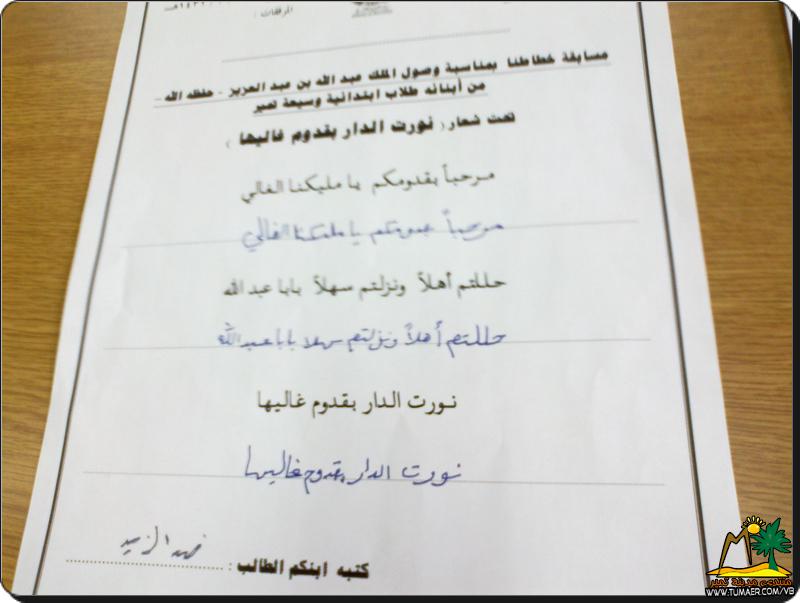 المرفقات :
مسابقة خطاطنا بمناسبة وصول الملك عبد الله بن عبد العزيز - حفظه الله -
من أبنائه طلاب ابتدائية وسيعة تمير
تحت شعار ( نورت الدار بقدوم غاليها )
مرحباً بقدومكم يا مليكنا الغالي
مرحباً بقدومكم يا مليكنا الغالي
حللتم أهلاً ونزلتم سهلاً بابا عبد الله
حللتم أهلاً ونزلتم سهلا بابا عبد الله
نورت الدار بقدوم غاليها
نورت الدار بقدوم غاليها
كتبه ابنكم الطالب : فهد الزيد
منتدى مدينة تمير
WWW.TUMAER.COM/VB